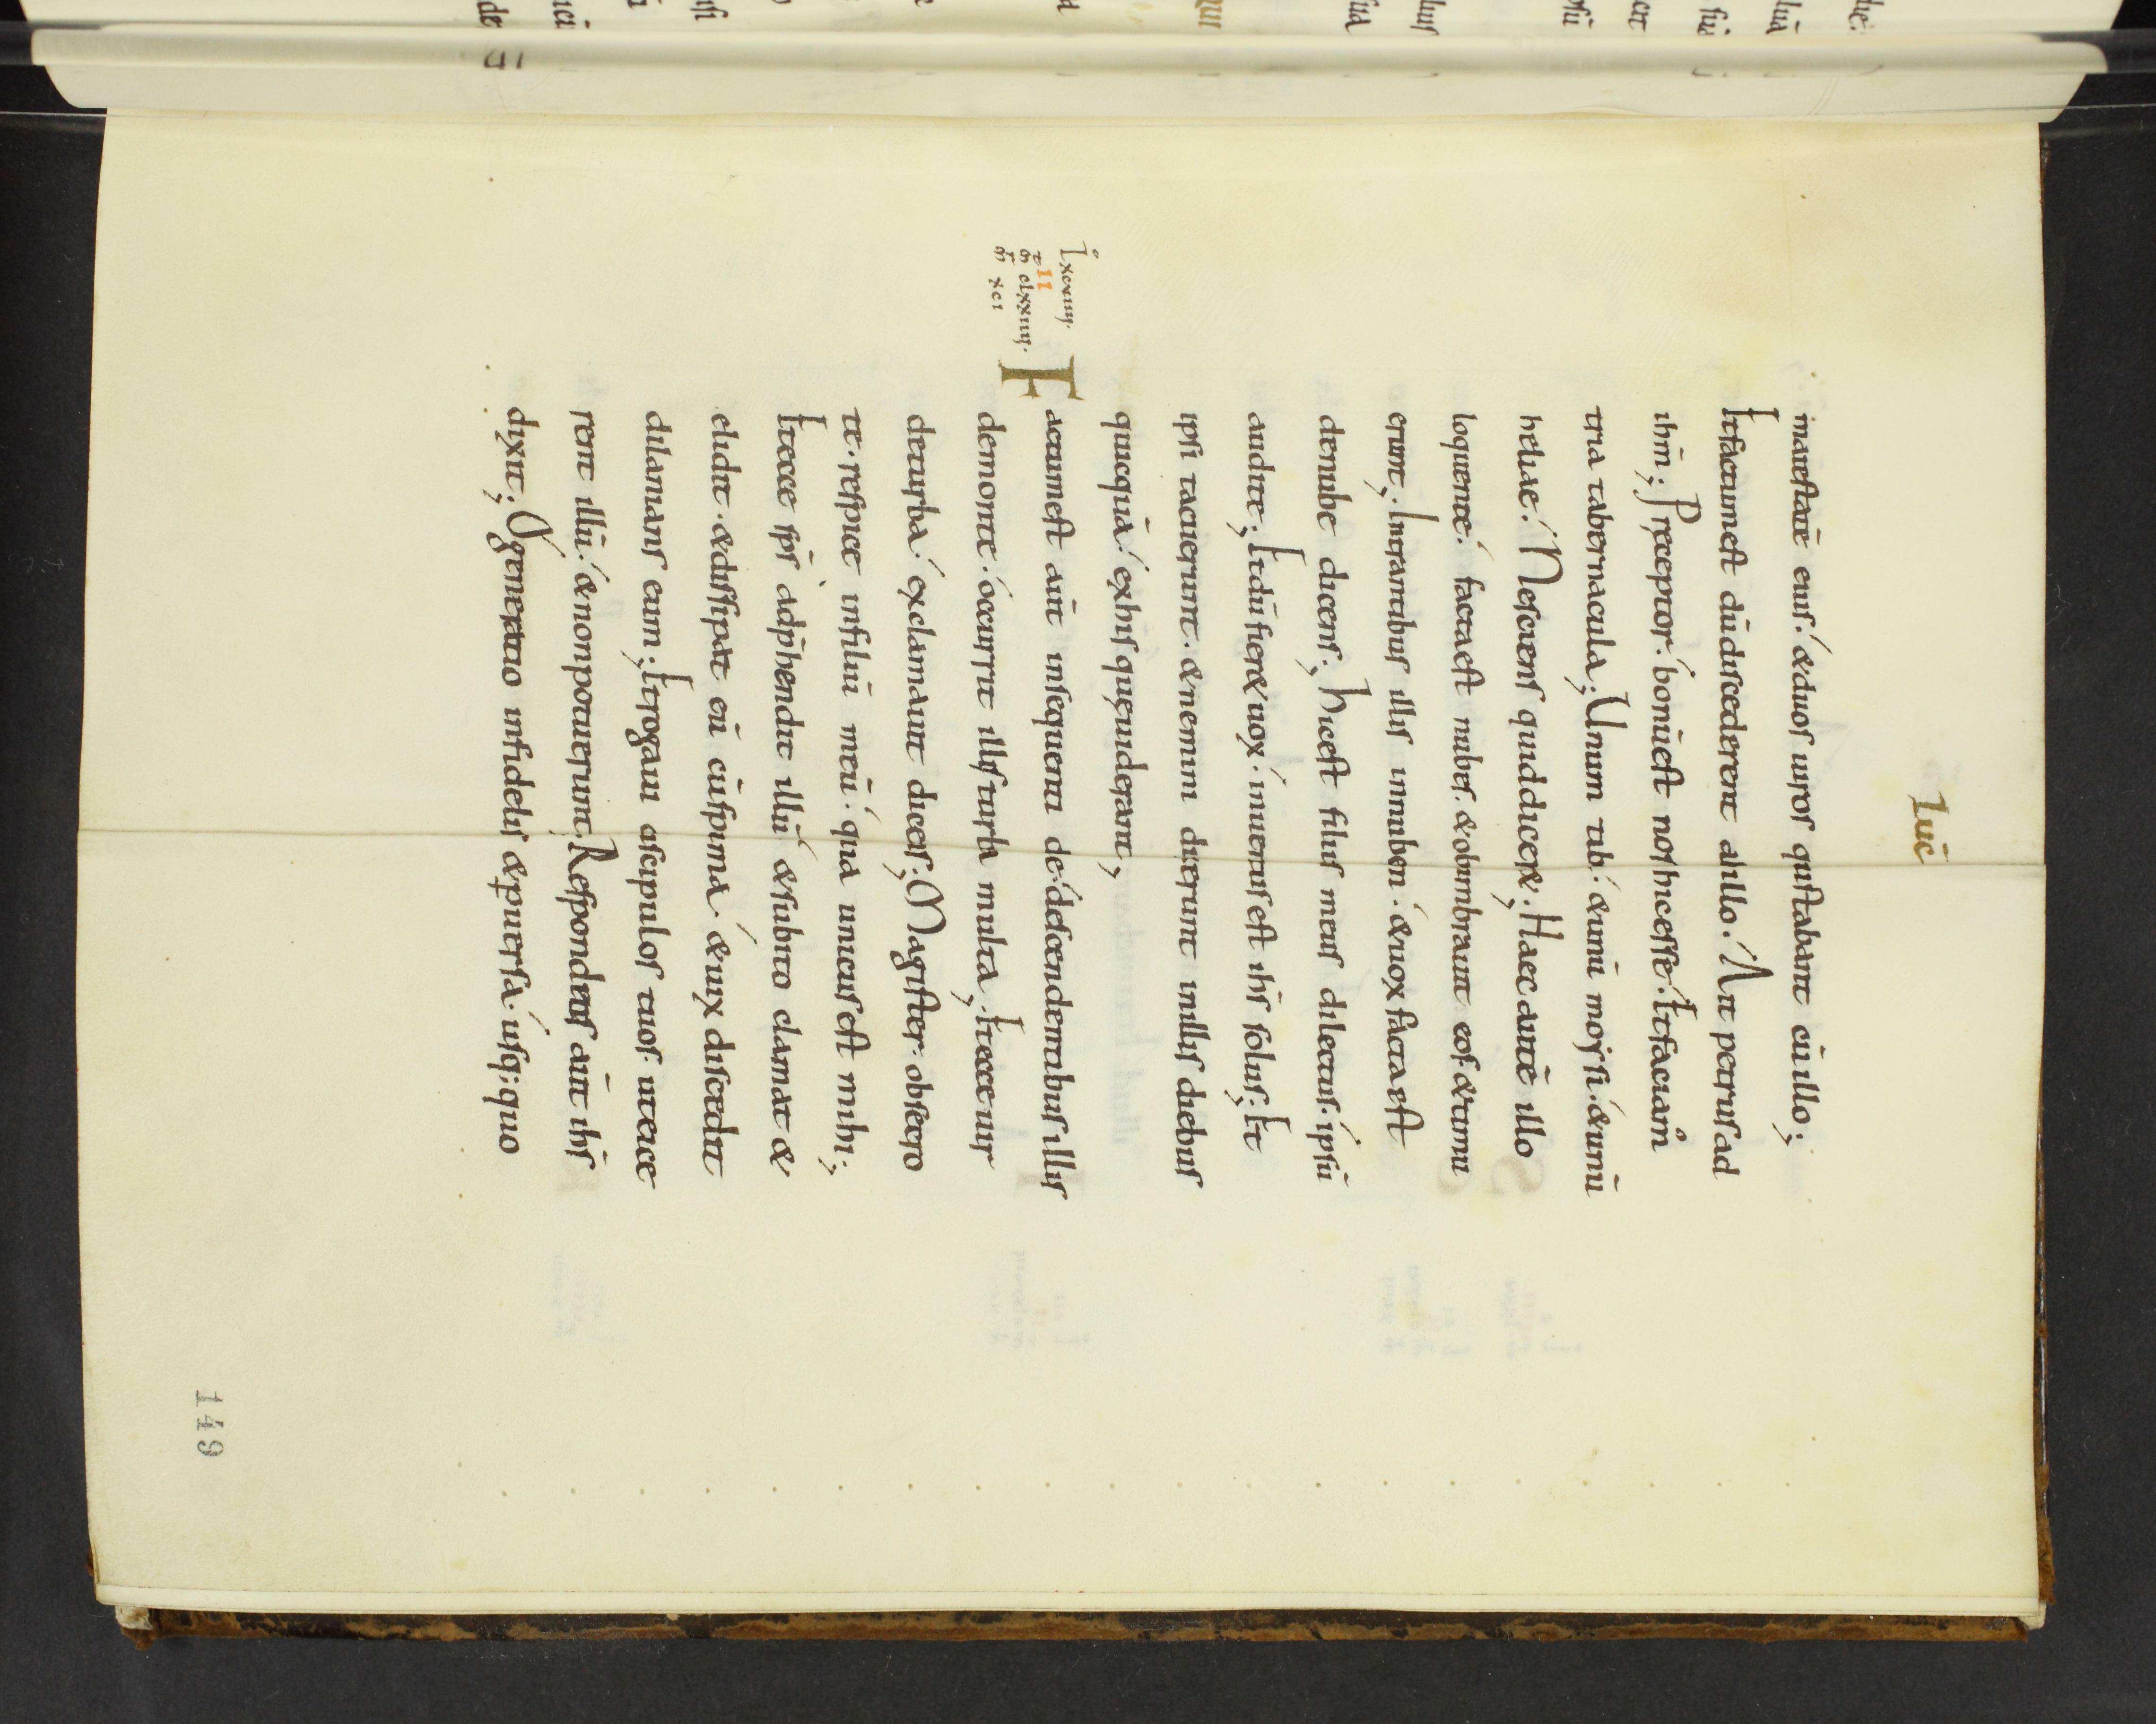 Luc̄
maiestatē eius. & duos uiros qui stabant cū illo;
Et factum est dū discederent ab illo. Ait petrus ad
ihm̄; Preceptor. bonū est nos hic esse. Et faciam̊
tria tabernacula; Unum tibi. & unū moysi. & unū
heliae. Nesciens quid diceret; Haec autē illo
loquente. facta est nubes. & obumbrauit eos. & timu
erunt; Intrantibus illis in nubem. & uox facta est
de nube dicens; Hic est filius meus dilectus. ipsū
audite; Et dū fieret uox. inuentus est ihs̄ solus; Et
ipsi tacuerunt. & nemini dixerunt in illis diebus
quicquā. ex his quę uiderant;
L̊ xcxiiii.
II
m̄t clxxiiii.
m̄r xci
Factum est aūt in sequenti die. descendentibus illis
de monte. occurrit illis turba multa; Et ecce uir
de turba. exclamauit dicens; Magister. obsecro
te. respice in filiū meū. quia unicus est mihi;
Et ecce sp̄s adp̄hendit illū. & subito clamat &
elidit. & dissipat eū cū spuma. & uix discedit
dilanians eum; Et rogaui discipulos tuos. ut eice
rent illū. & non potuerunt. Respondens aūt ihs̄
dixit; O generatio infidelis & puersa. usq; quo
149